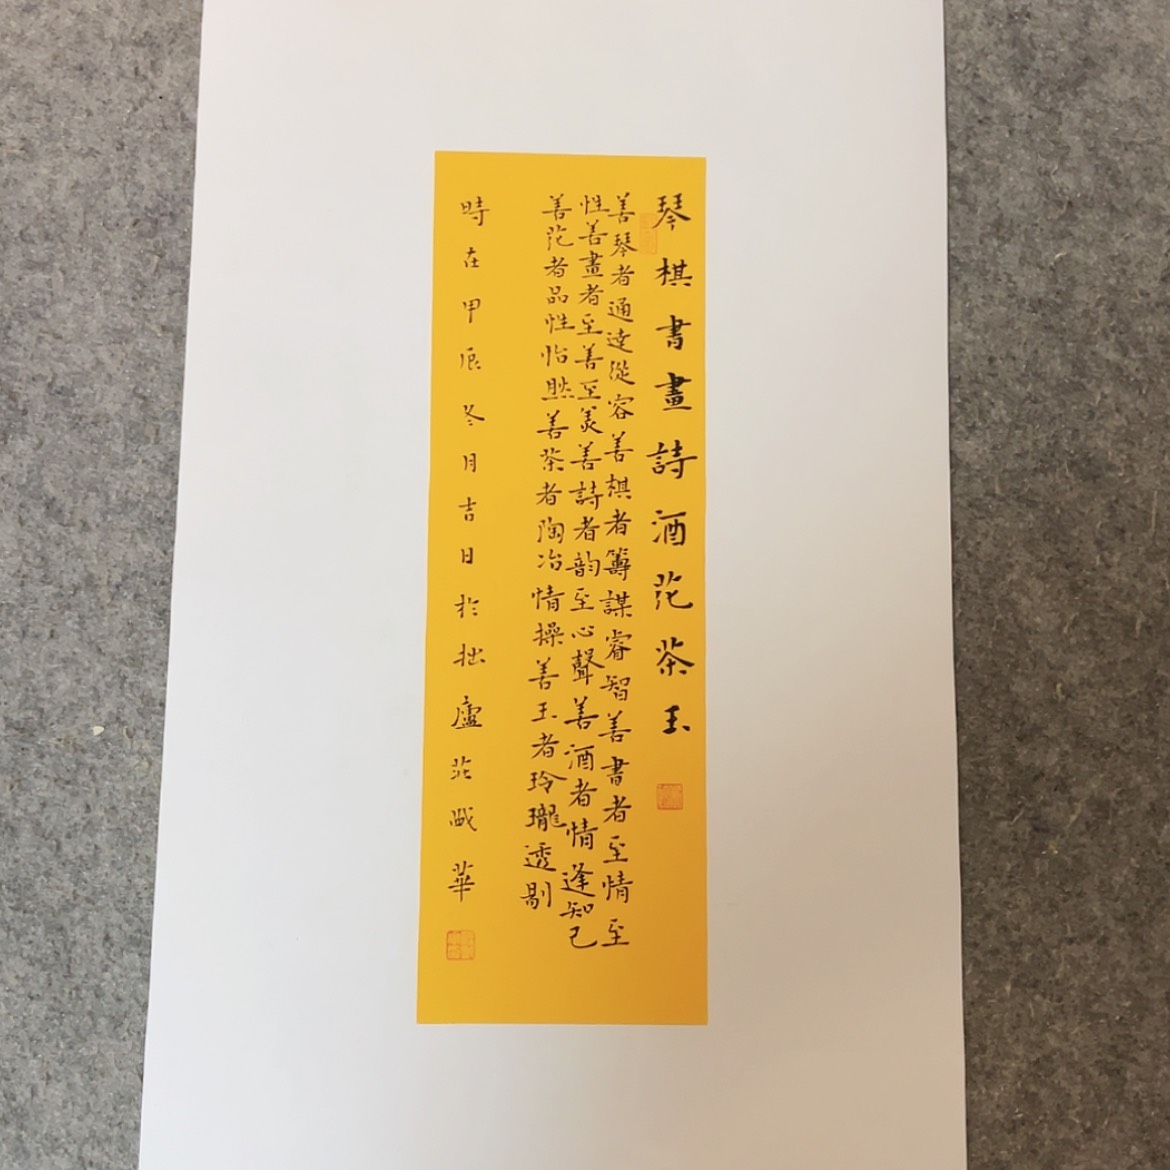 琴棋書畫詩酒花茶玉
善琴者通達從容善棋者籌謀睿智善書者至情至
性善畫者至善至美善詩者韵至心聲善酒者情逢知己
善花者品性怡然善茶者陶冶情操善玉者玲瓏透剔
時在甲辰冬月吉日於拙廬莊華